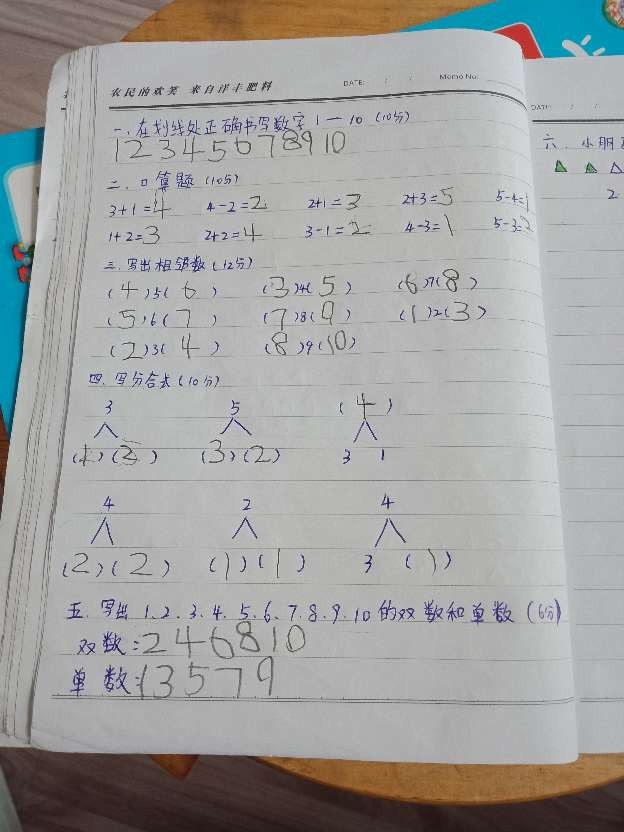 农民的欢笑 来自洋丰肥料 DATE: / / Memo No:
一、在划线处正确书写数字1—10 (10分)
1 2 3 4 5 6 7 8 9 10
二、口算题 (10分)
3+1=4 4-2=2 2+1=3 2+3=5 5-4=1
1+2=3 2+2=4 3-1=2 4-3=1 5-3=2
三、写出相邻数 (12分)
(4)5(6) (3)4(5) (6)7(8)
(5)6(7) (7)8(9) (1)2(3)
(2)3(4) (8)9(10)
四、写分合式 (10分)
3 5 (4)
(1)(2) (3)(2) 3 1
4 2 4
(2)(2) (1)(1) 3 (1)
五、写出1、2、3、4、5、6、7、8、9、10的双数和单数 (6分)
双数:2 4 6 8 10
单数:1 3 5 7 9
DATE: / /
六、小朋
2